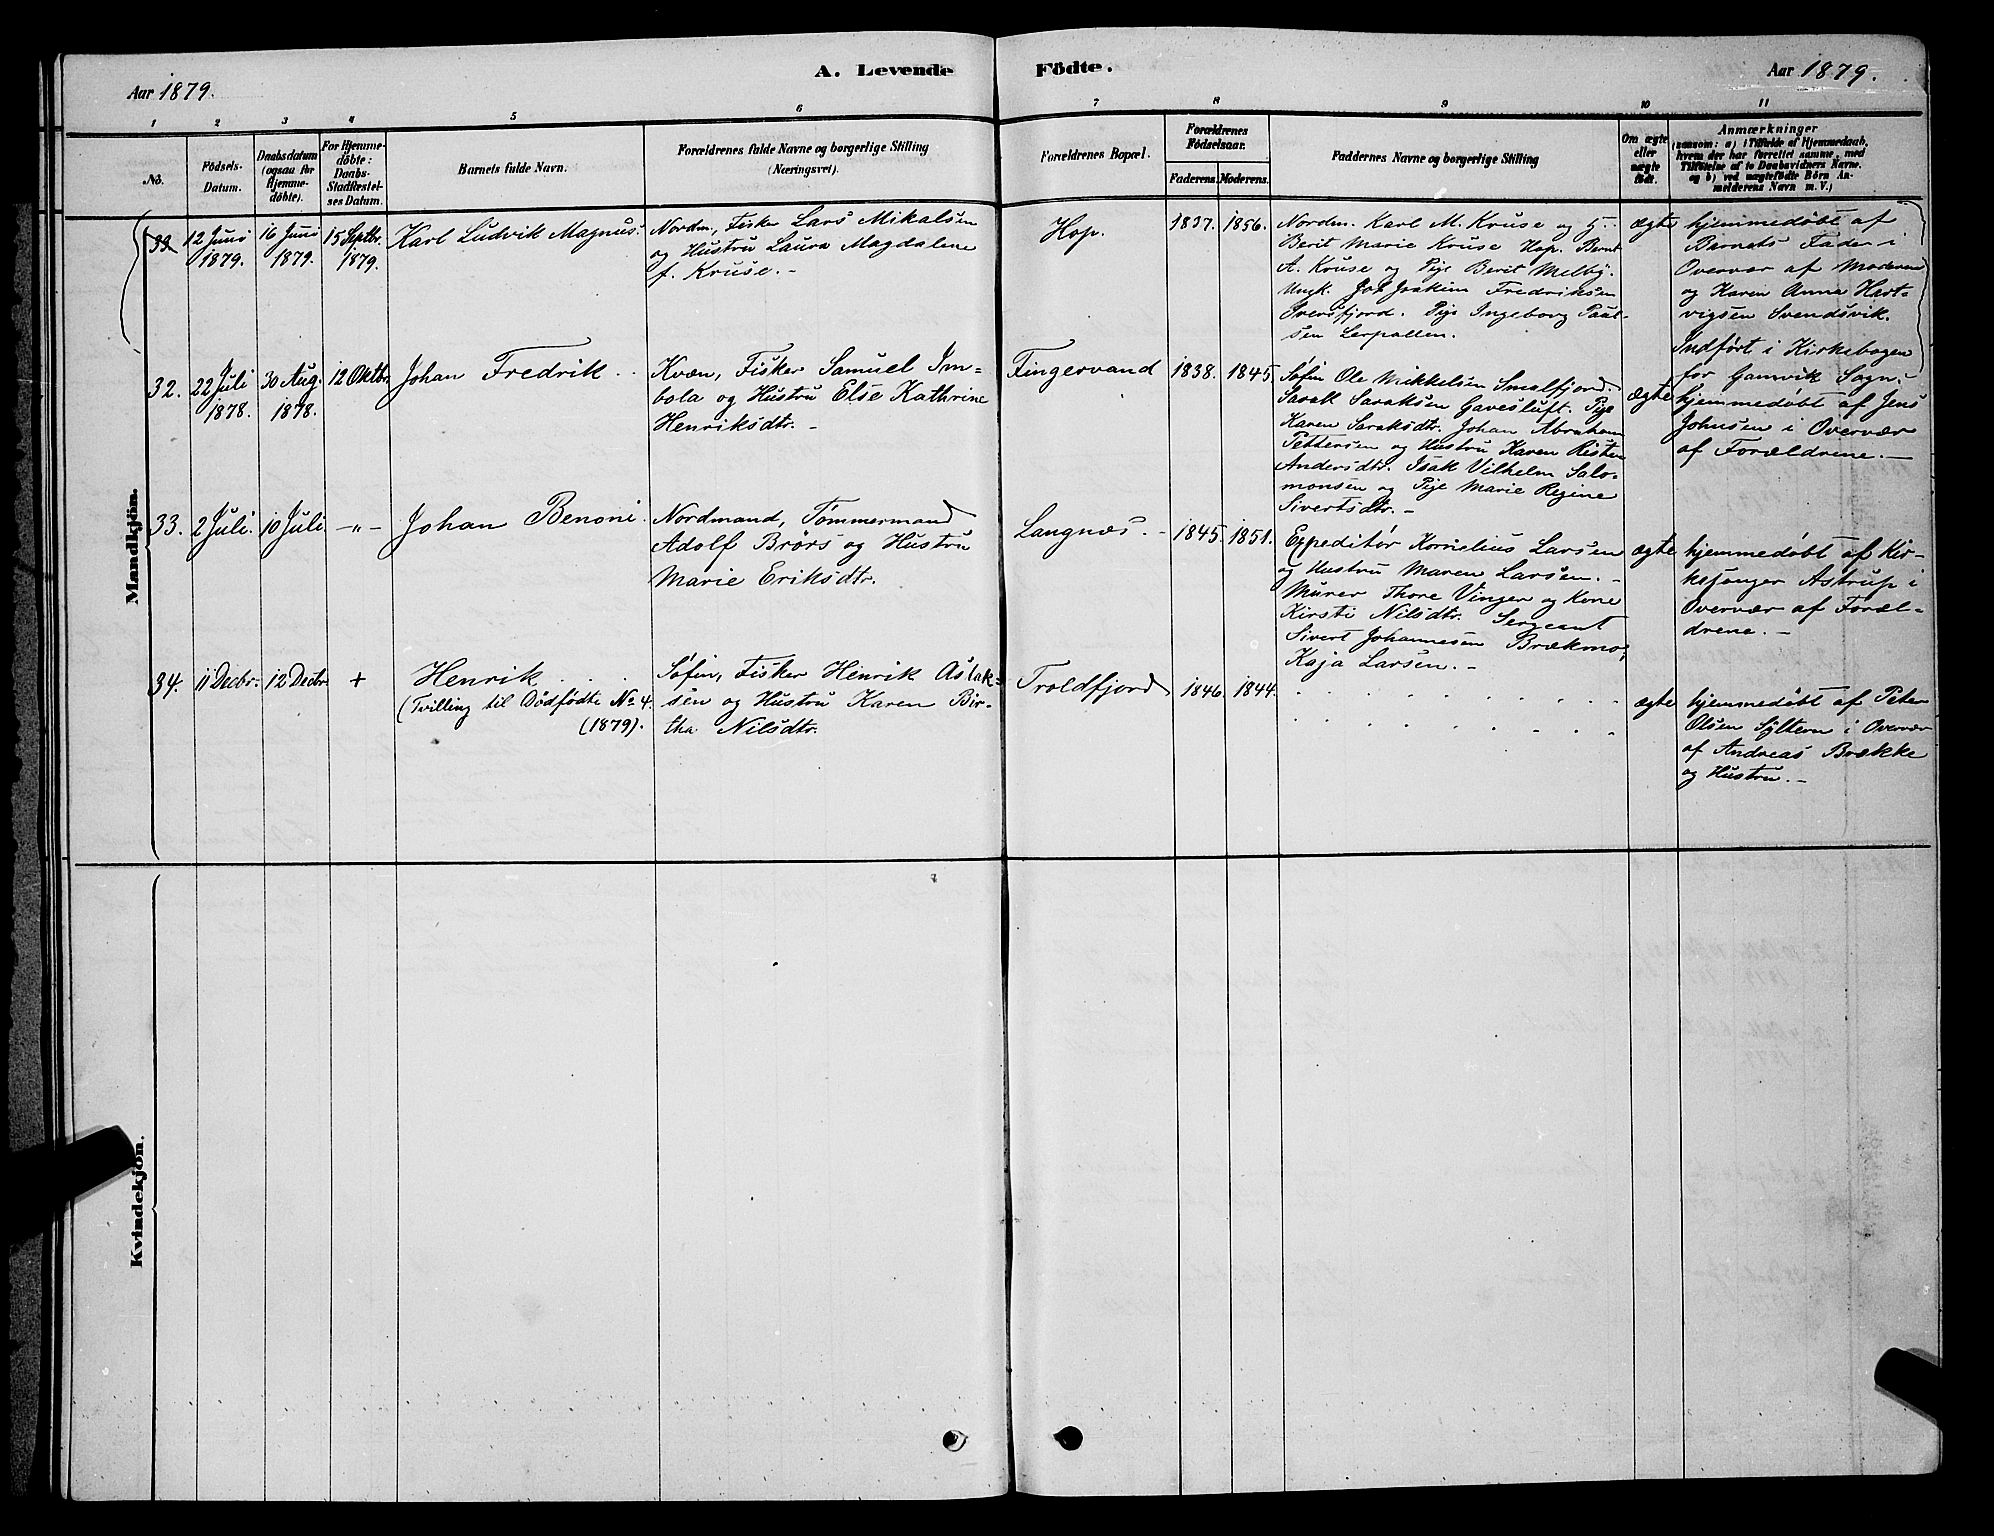 A. Levende Födte.
Aar 1879.
Aar 1879.
1 2 3 4 5 6 7 8 9 10 11
No.
Födsels-
Datum.
Daabsdatum
(ogsaa for
Hjemme-
döbte).
For Hjemme-
döbte:
Daabs-
Stadfæstel-
ses Datum.
Barnets fulde Navn.
Forældrenes fulde Navne og borgerlige Stilling
(Næringsvei).
Forældrenes Bopæl.
Forældrenes
Födselsaar.
Faderens. Moderens.
Faddernes Navne og borgerlige Stilling
Om ægte
eller
uægte
födt.
Anmærkninger
(saasom: a) i Tilfælde af Hjemmedaab,
hvem der har forrettet samme, med
Tilföielse af to Daabsvidners Navne.
og b) ved uægtefödte Börn An-
melderens Navn m. V.)
Mandkjön.
33.
12 Juni
1879.
16 Juni
1879.
15 Septbr.
1879.
Karl Ludvik Magnus.
Nordm., Fisker Lars Mikalsen
og Hustru Laura Magdalene
f. Kruse. -
Hop.
1837. 1856.
Nordm. Karl M. Kruse og
Berit Marie Kruse Hop. Bernt
A. Kruse og Pige Berit Melby.
Ungk. Joh Joakim Fredriksen
Iversfjord. Pige Ingeborg Paul-
sen Lerpollen.
ægte
hjemmedøbt af
Barnets Fader i
Overvær af Moderen
og Karen Anna Hart-
vigsen Svendsvik.
Indført i Kirkebogen
for Gamvik Sogn.
32.
22 Juli
1878.
30 Aug.
1878.
12 Oktbr.
Johan Fredrik
Kvæn, Fisker Samuel Im-
bola og Hustru Else Kathrine
Henriksdtr. -
Fingervand
1838. 1845.
Søfin Ole Mikkelsen Smalfjord.
Sarak Saraksen Gavesluft. Pige
Karen Saraksdtr. Johan Abraham
Pettersen og Hustru Karen Risten
Andersdtr. Isak Vilhelm Salo-
monsen og Pige Marie Regine
Sivertsdtr. -
ægte
hjemmedøbt af Jens
Johnsen i Overvær
af Forældrene. -
33.
2 Juli.
10 Juli.
-"-
Johan Benoni.
Nordmand, Tømmermand
Adolf Brørs og Hustru
Marie Eriksdtr.
Langnæs. -
1845. 1851.
Expeditør Kornelius Larsen
og Hustru Maren Larsen. -
Murer Thore Vinger og Kone
Kirsti Nilsdtr. Sergeant
Sivert Johannesen Brækmo,
Kaja Larsen. -
ægte
hjemmedøbt af Kir-
kesjanger Astrup i
Overvær af Foræl-
drene. -
34.
11 Decbr.
12 Decbr.
+
Henrik
(Tvilling til Dødfødte No 4.
(1879).
Søfin, Fisker Henrik Aslak-
sen og Hustru Karen Bir-
tha Nilsdtr.
Troldfjord
1846. 1844.
ægte
hjemmedøbt af Peter
Olsen Syltern i Overvær
af Andreas Brække
og Hustru. -
Kvindekjön.